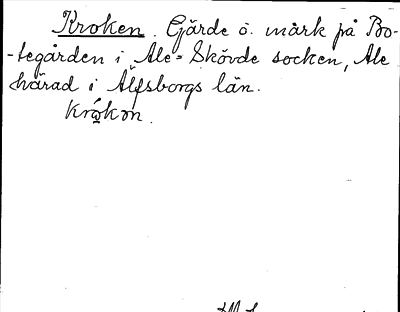 Kroken. Gärde o. mark på Bo-
-tegården i Ale-Skövde socken, Ale
härad i Älfsborgs län.